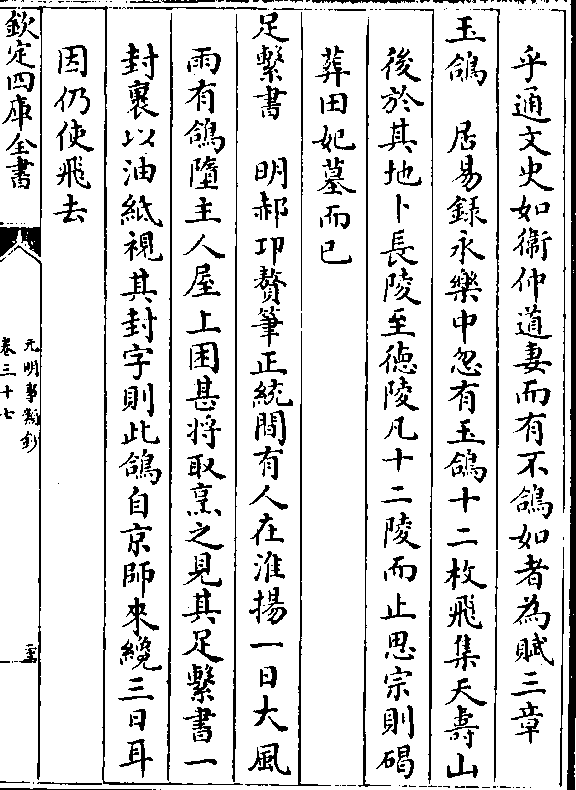 乎通文史如衛仲道妻而有不鴿如者為賦三章
玉鴿　居易録永樂中忽有玉鴿十二枚飛集天壽山
後於其地卜長陵至德陵凡十二陵而止思宗則礍
葬田妃墓而已
足繫書　明郝卭贅筆正統間有人在淮揚一日大風
雨有鴿墮主人屋上困甚将取烹之見其足繫書一
封裹以油紙視其封字則此鴿自京師來纔三日耳
因仍使飛去
欽定四庫全書
元明事類鈔
卷三十七